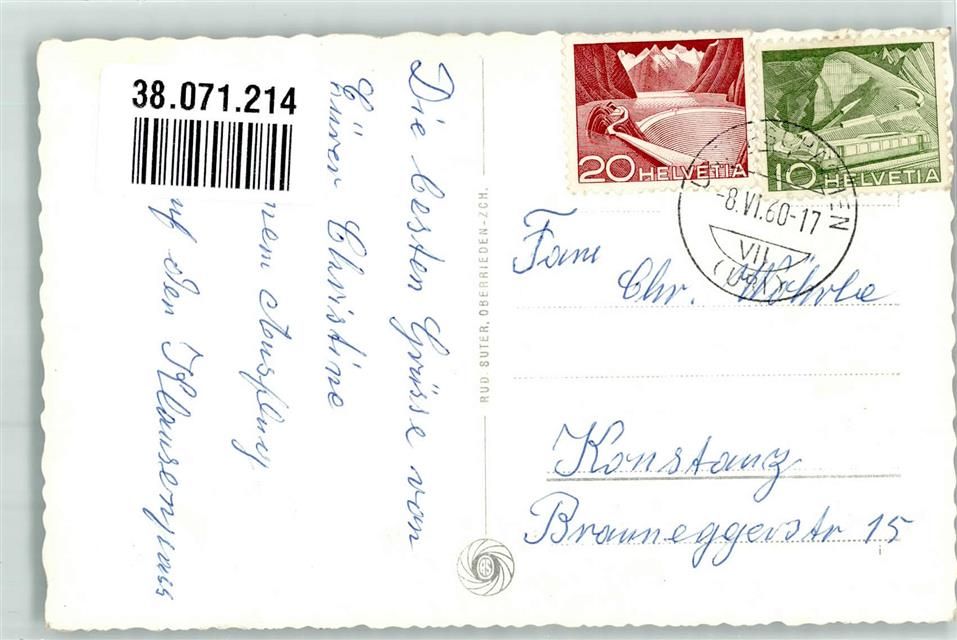 38.071.214
Die besten Grüsse von
Eürer Christine
nem Ausflug
uf den Klausenpass
RUD. SUTER, OBERRIEDEN-ZCH.
RS
20 HELVETIA
10 HELVETIA
-8.VI.60-17
VII
(URI)
Fam
Chr. Wöhrle
Konstanz
Brauneggerstr 15